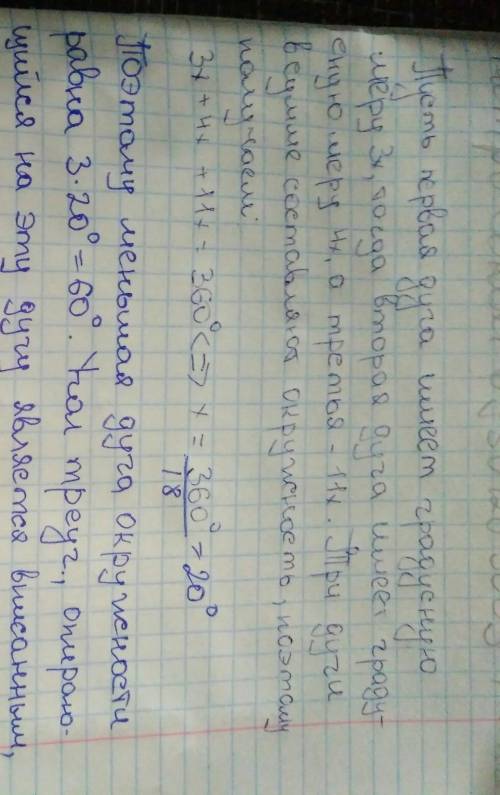 Пусть первая дуга имеет градусную
меру 3x, тогда вторая дуга имеет граду-
сную меру 4x, а третья - 11x. Три дуги
в сумме составляют окружность, поэтому
получаем:
3x + 4x + 11x = 360° <=> x = 360°/18 = 20°
Поэтому меньшая дуга окружности
равна 3·20° = 60°. Угол треуг., опираю-
щийся на эту дугу является вписанным,